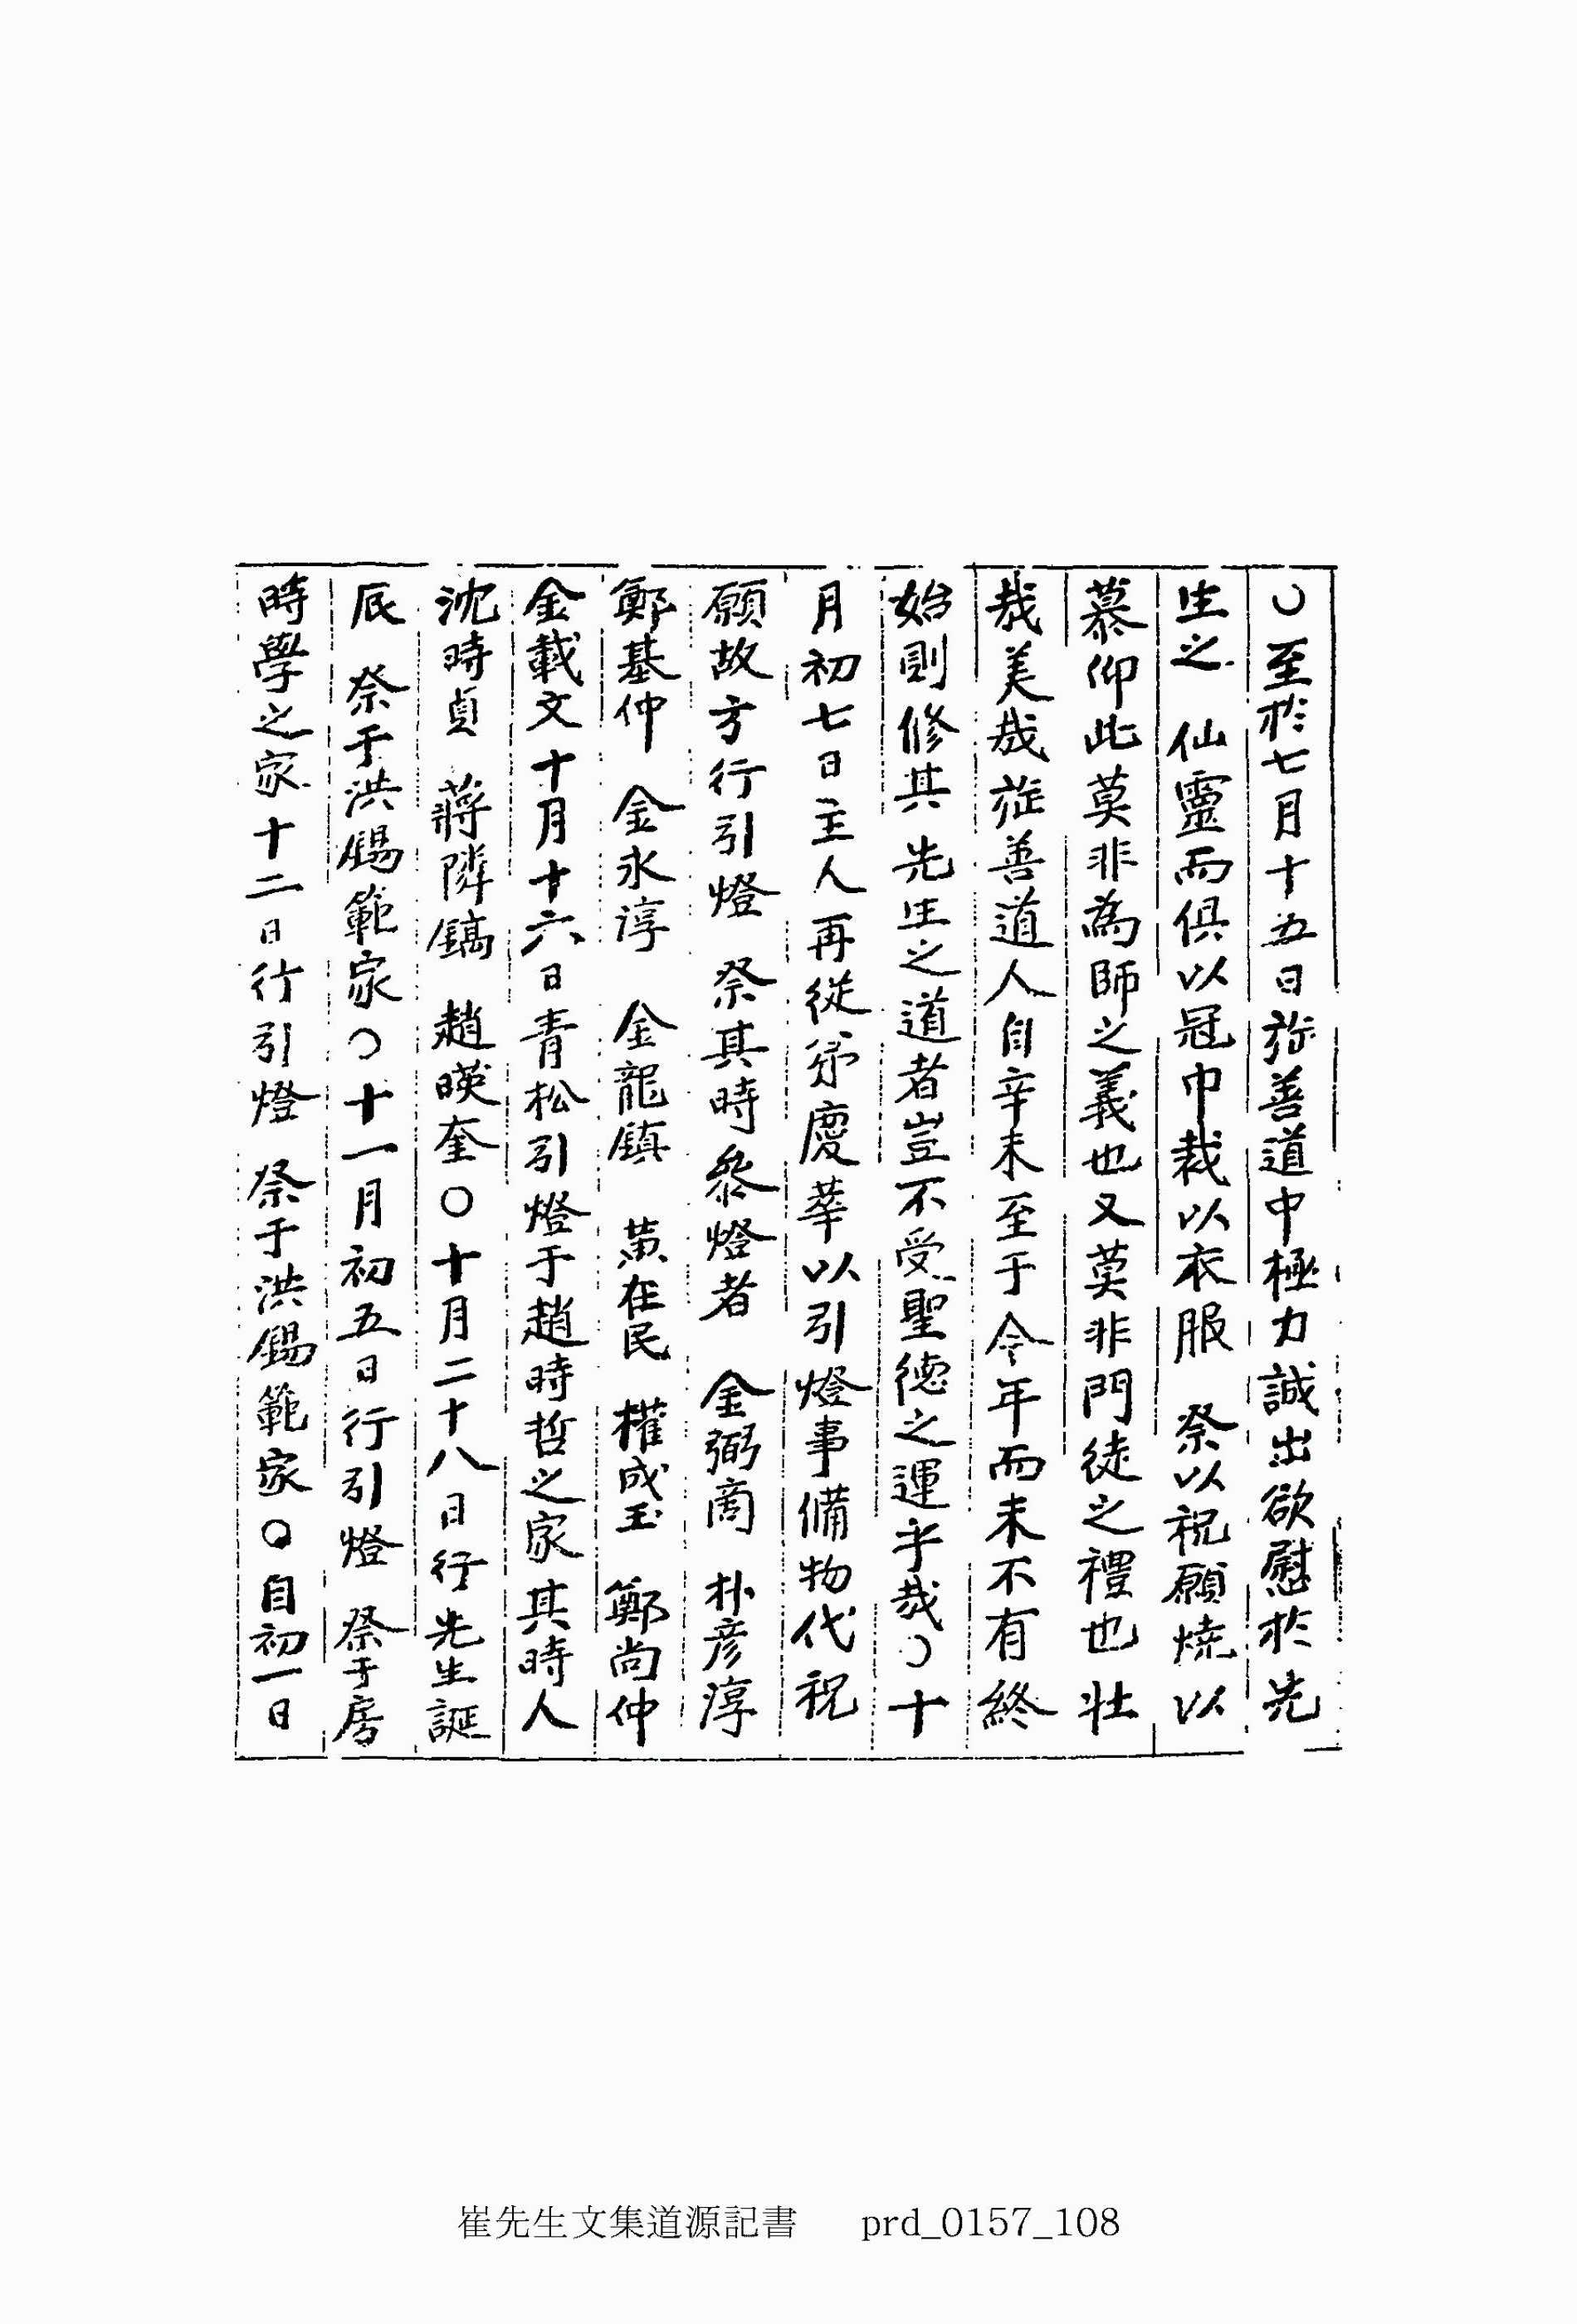 ○至於七月十五日旀善道中極力誠出欲慰於先
生之 仙靈而俱以冠巾裁以衣服 祭以祝願燒以
慕仰此莫非為師之義也又莫非門徒之禮也壯
哉美哉旀善道人自辛未至于今年而未不有終
始則修其 先生之道者豈不受聖德之運乎哉○十
月初七日主人再從弟慶華以引燈事備物代祝
願故方行引燈 祭其時參燈者 金弼商 朴彦淳
鄭基仲 金永淳 金龍鎮 黃在民 權成玉 鄭尚仲
金載文十月十六日青松引燈于趙時哲之家其時人
沈時貞 蔣隣鎬 趙暎奎○十月二十八日行先生誕
辰 祭于洪錫範家○十一月初五日行引燈 祭于房
時學之家十二日行引燈 祭于洪錫範家○自初一日
崔先生文集道源記書 prd_0157_108